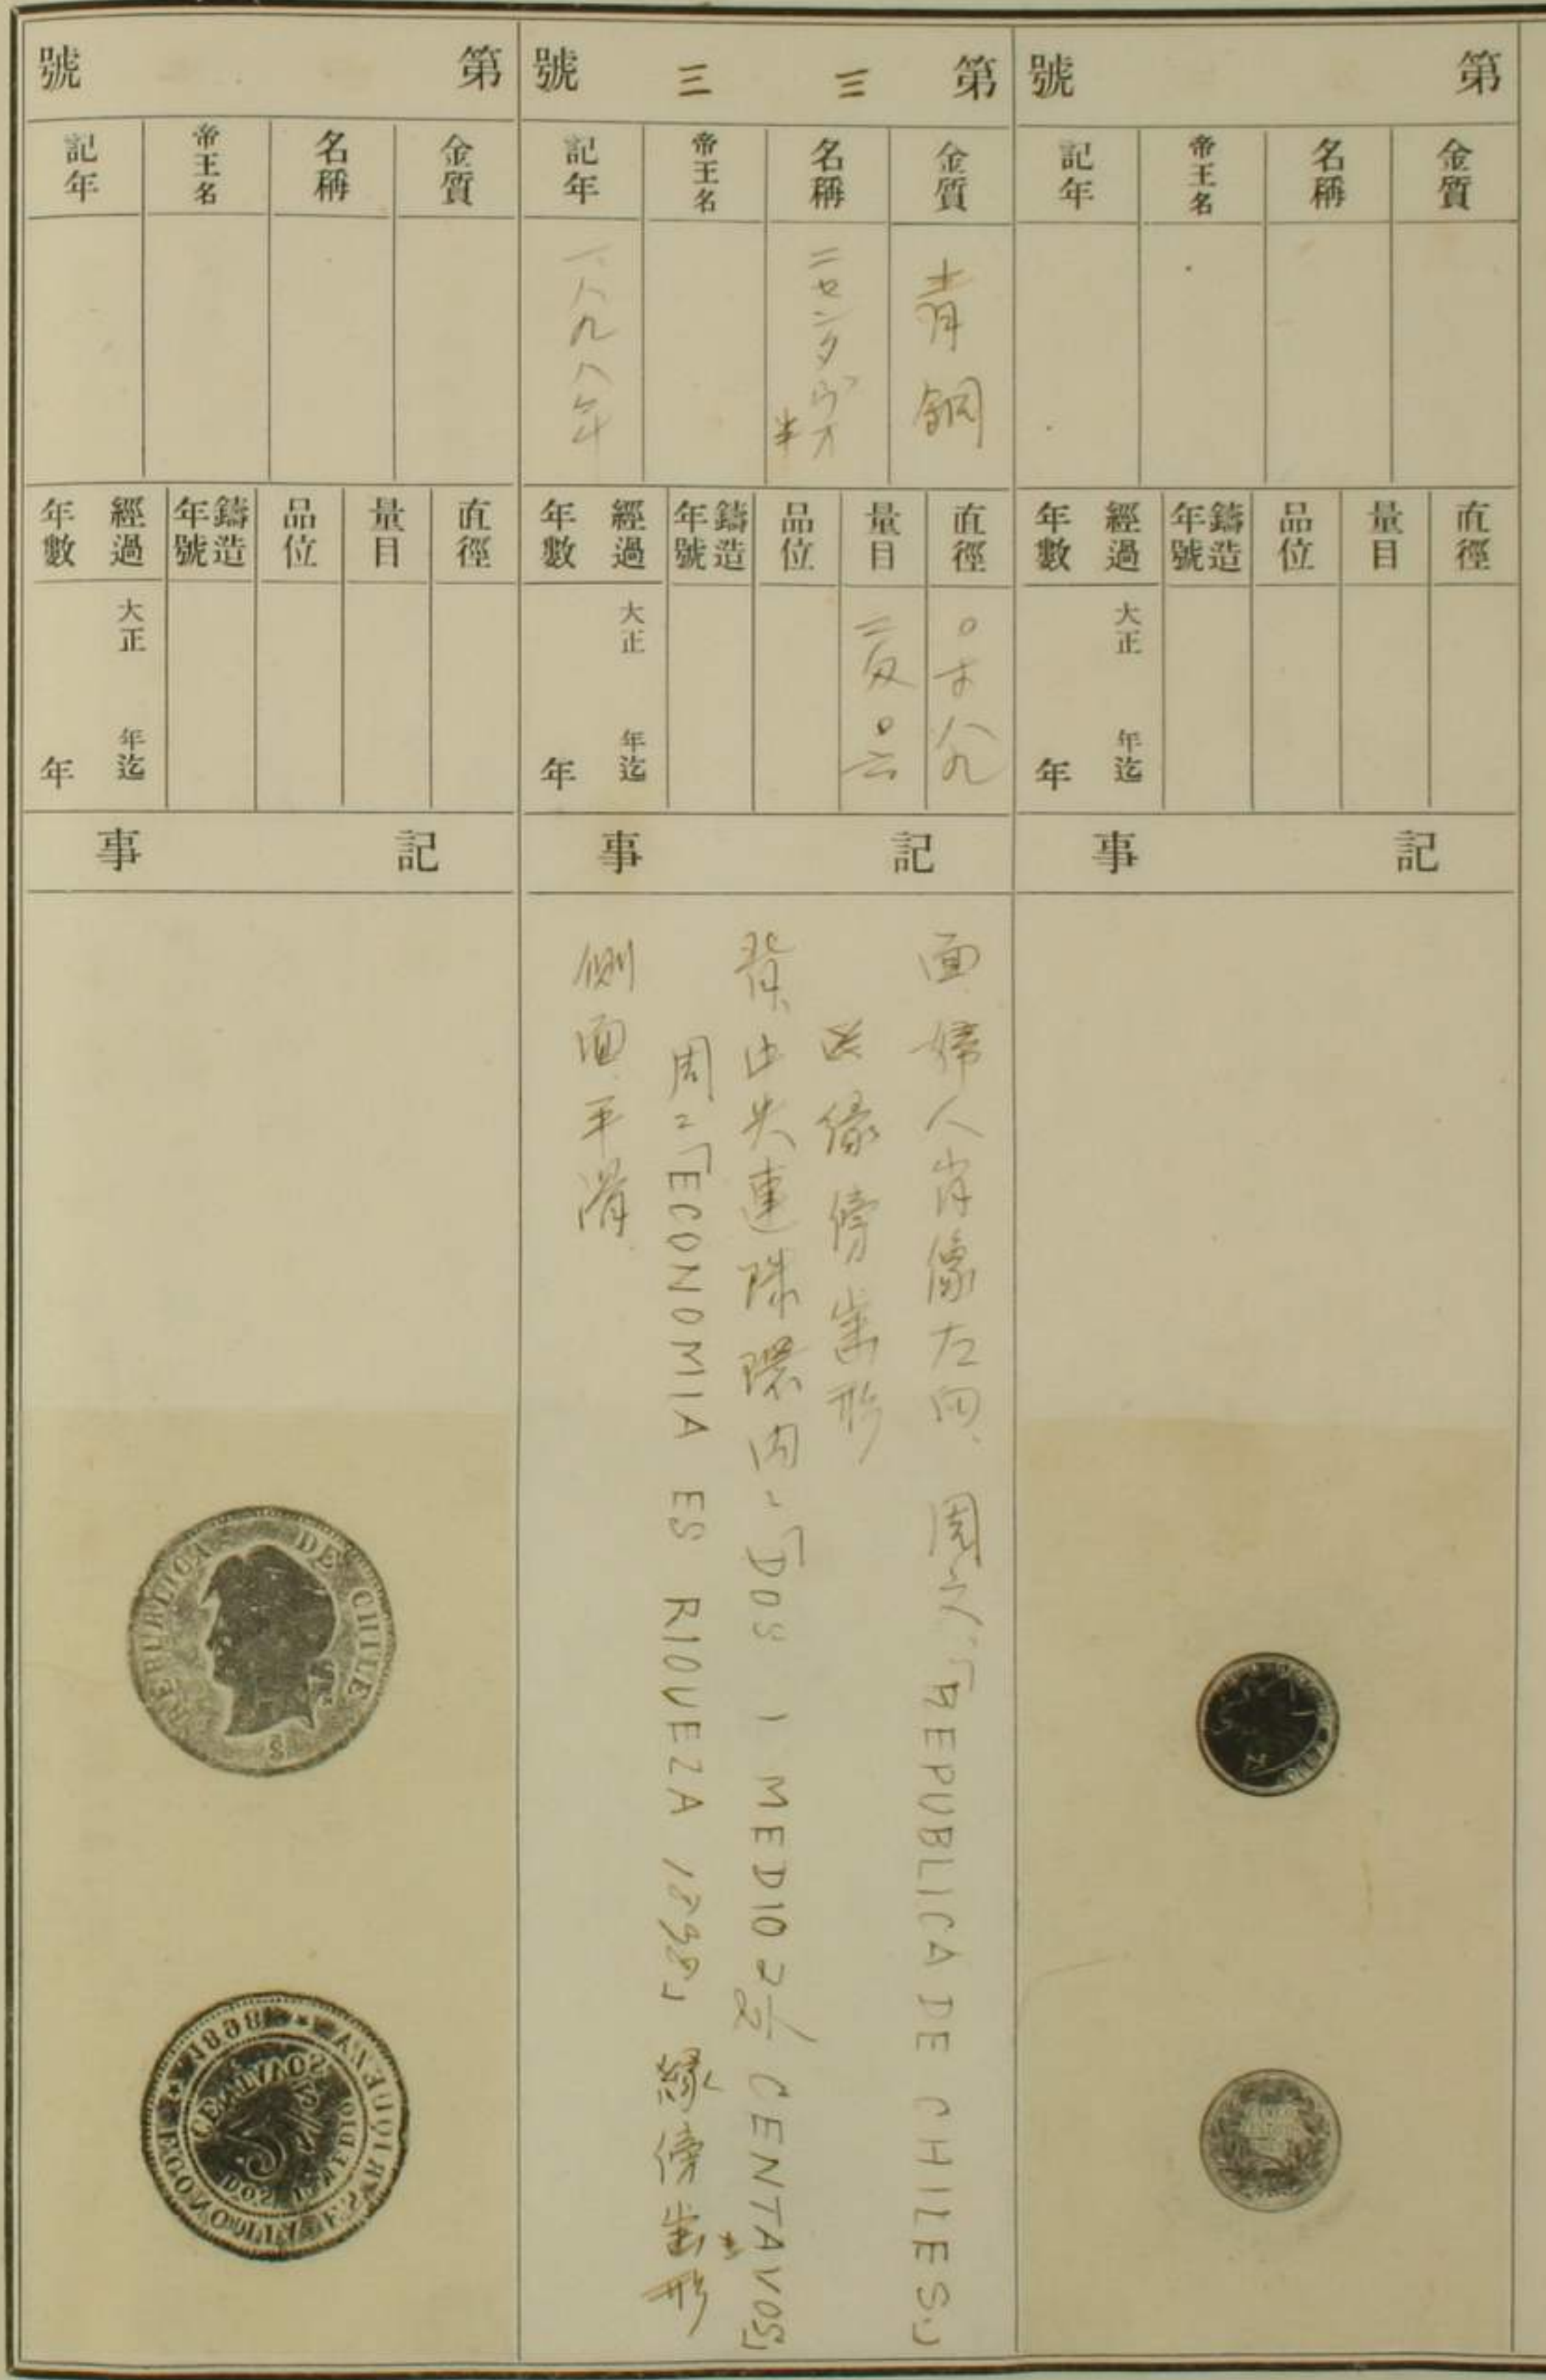 第 號
金質
名稱
帝王名
記年
直徑
量目
品位
鑄造年號
經過年數
大正 年迄
年
記事
第三三號
金質
青銅
名稱
二センタヴオ半
帝王名
記年
一八九八年
直徑
〇寸八九
量目
二匁〇六
品位
鑄造年號
經過年數
大正 年迄
年
記事
面、婦人肖像左向、周文「REPUBLICA DE CHILE S.」
緣傍齒形
背、中央連珠環内ニ「DOS I MEDIO 2 1/2 CENTAVOS」
周ニ「ECONOMIA ES RIQUEZA 1898」 緣傍齒形
側面、平滑
第 號
金質
名稱
帝王名
記年
直徑
量目
品位
鑄造年號
經過年數
大正 年迄
年
記事
REPUBLICA DE CHILE
S
ECONOMIA ES RIQUEZA
1898
DOS I MEDIO
2 1/2
CENTAVOS